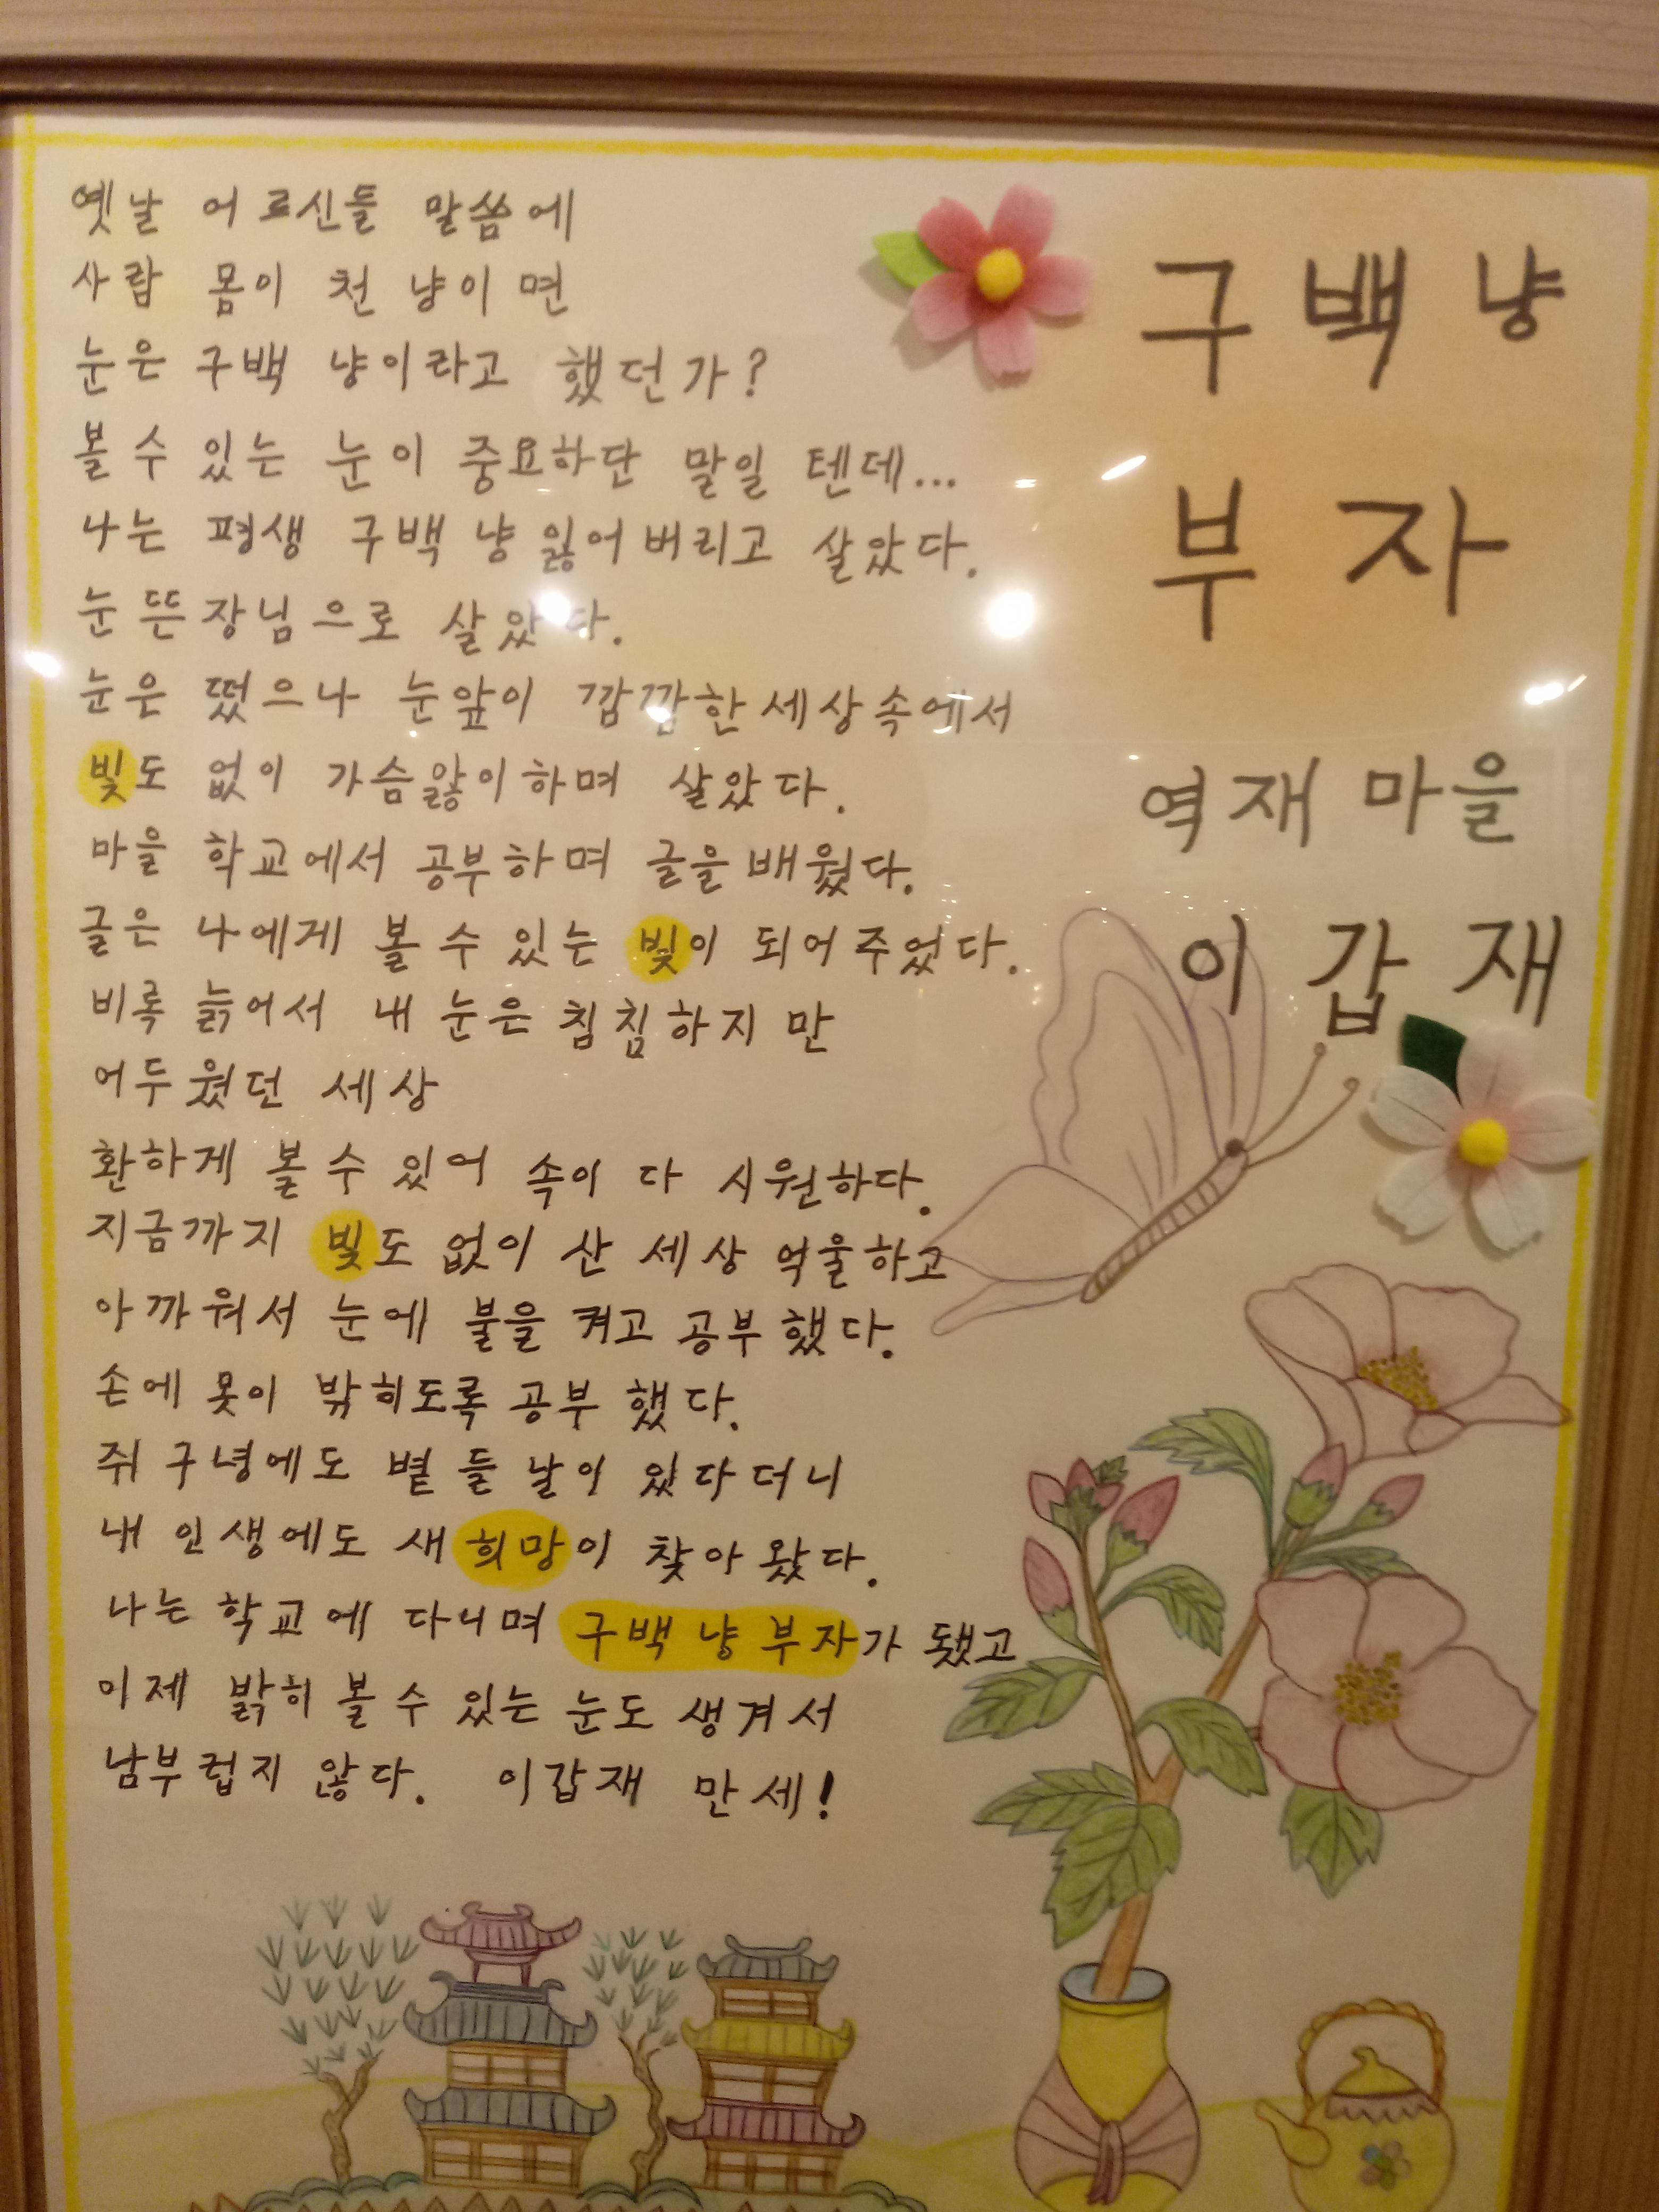 구백 냥
부자
역재 마을
이갑재
옛날 어르신들 말씀에
사람 몸이 천 냥이면
눈은 구백 냥이라고 했던가?
볼 수 있는 눈이 중요하단 말일 텐데...
나는 평생 구백 냥 잃어버리고 살았다.
눈 뜬 장님으로 살았다.
눈은 떴으나 눈앞이 깜깜한 세상속에서
빛도 없이 가슴앓이하며 살았다.
마을 학교에서 공부하며 글을 배웠다.
글은 나에게 볼 수 있는 빛이 되어주었다.
비록 늙어서 내 눈은 침침하지만
어두웠던 세상
환하게 볼 수 있어 속이 다 시원하다.
지금까지 빛도 없이 산 세상 억울하고
아까워서 눈에 불을 켜고 공부했다.
손에 못이 밖히도록 공부 했다.
쥐 구녕에도 볕 들 날이 있다더니
내 인생에도 새 희망이 찾아 왔다.
나는 학교에 다니며 구백 냥 부자가 됐고
이제 밝히 볼 수 있는 눈도 생겨서
남부럽지 않다. 이갑재 만세!